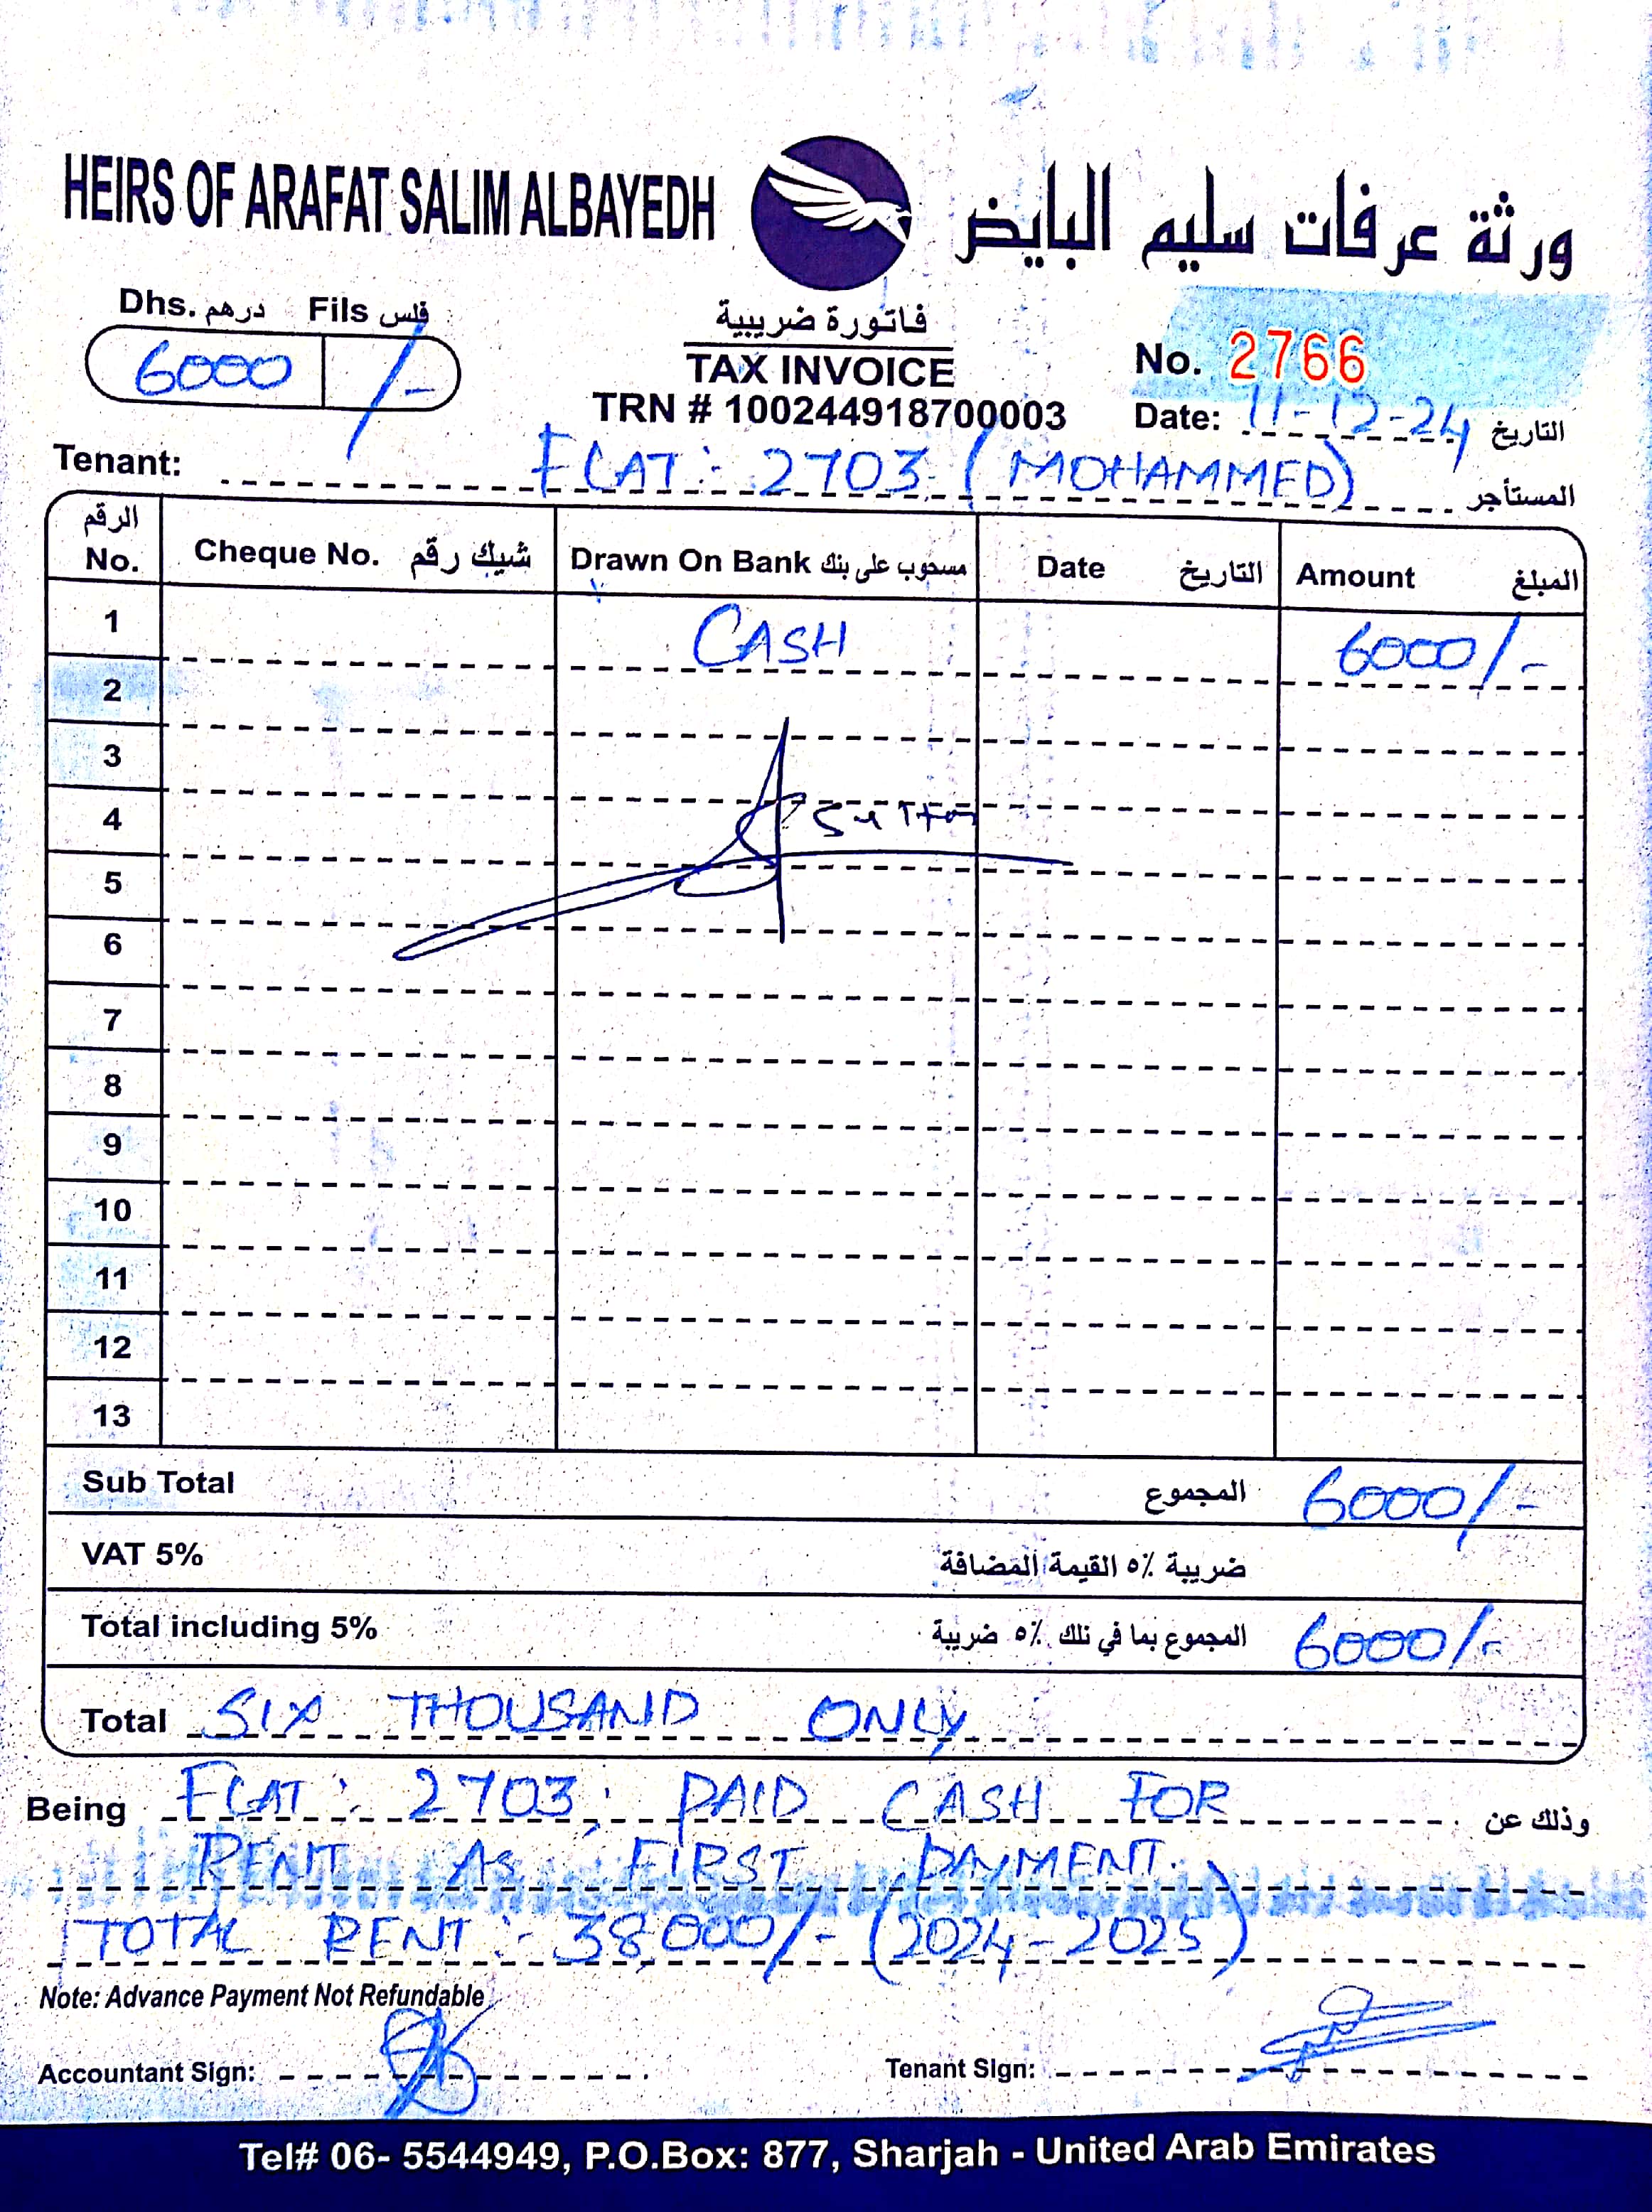 HEIRS OF ARAFAT SALIM ALBAYEDH ورثة عرفات سليم البايض
Dhs. درهم Fils فلس
6000 /-
فاتورة ضريبية
TAX INVOICE
TRN # 100244918700003
No. 2766
Date: 11-12-24 التاريخ
Tenant: FLAT: 2703 (MOHAMMED) المستأجر
الرقم No. Cheque No. شيك رقم Drawn On Bank مسحوب على بنك Date التاريخ Amount المبلغ
1 CASH 6000/-
2
3
4
5
6
7
8
9
10
11
12
13
Sub Total المجموع 6000/-
VAT 5% ضريبة ٥٪ القيمة المضافة
Total including 5% المجموع بما في ذلك ٥٪ ضريبة 6000/-
Total SIX THOUSAND ONLY
Being FLAT: 2703, PAID CASH FOR وذلك عن
RENT AS FIRST PAYMENT.
TOTAL RENT:- 38,000/- (2024-2025)
Note: Advance Payment Not Refundable
Accountant Sign: Tenant Sign:
Tel# 06- 5544949, P.O.Box: 877, Sharjah - United Arab Emirates